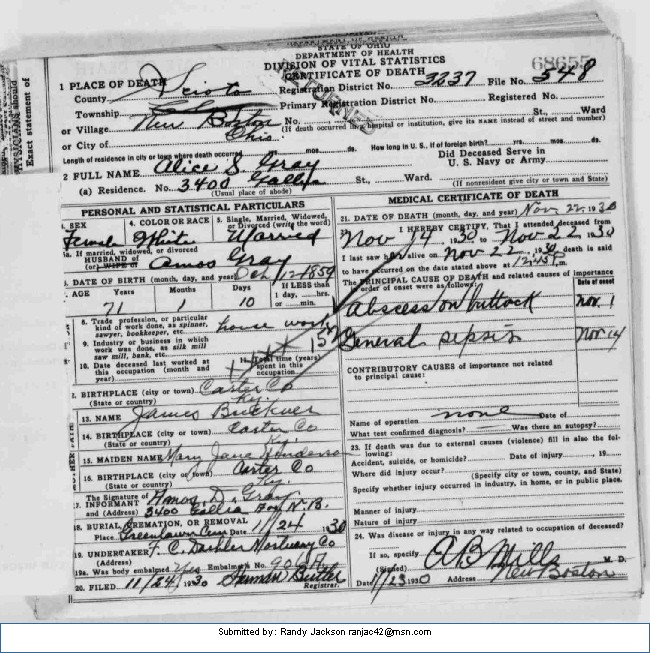 STATE OF OHIO
DEPARTMENT OF HEALTH
DIVISION OF VITAL STATISTICS
CERTIFICATE OF DEATH
68655
1 PLACE OF DEATH
County Scioto Registration District No. 3237 File No. 548
Township Primary Registration District No. Registered No.
or Village New Boston No. St., Ward
or City of Ohio. (If death occurred in a hospital or institution, give its NAME instead of street and number)
Length of residence in city or town where death occurred yrs. mos. ds. How long in U. S., if of foreign birth? yrs. mos. ds.
2 FULL NAME Alice S. Gray Did Deceased Serve in U. S. Navy or Army
(a) Residence. No. 3400 Gallia St., Ward.
(Usual place of abode) (If nonresident give city or town and State)
PERSONAL AND STATISTICAL PARTICULARS
3. SEX 4. COLOR OR RACE 5. Single, Married, Widowed, or Divorced (write the word)
Female White Married
5a. If married, widowed, or divorced
HUSBAND of
(or) WIFE of Amos Gray
6. DATE OF BIRTH (month, day, and year) Oct 12-1859
7. AGE Years Months Days If LESS than 1 day, hrs. or min.
71 1 10
8. Trade, profession, or particular kind of work done, as spinner, sawyer, bookkeeper, etc. house work
9. Industry or business in which work was done, as silk mill saw mill, bank, etc.
10. Date deceased last worked at this occupation (month and year)
11. Total time (years) spent in this occupation
12. BIRTHPLACE (city or town) Carter Co
(State or country) Ky.
13. NAME James Buckner
14. BIRTHPLACE (city or town) Carter Co
(State or country) Ky.
15. MAIDEN NAME Mary Jane Henderson
16. BIRTHPLACE (city or town) Carter Co
(State or country) Ky.
The Signature of
17. INFORMANT Amos D. Gray
and (Address) 3400 Gallia Ave N.B.
18. BURIAL, CREMATION, OR REMOVAL
Place Greenlawn Cem Date 11/24 1930
19. UNDERTAKER F. C. Daehler Mortuary Co
19a. Was body embalmed yes Embalmer's No.
20. FILED 11/24 1930 Registrar.
MEDICAL CERTIFICATE OF DEATH
21. DATE OF DEATH (month, day, and year) Nov 22, 1930
22. I HEREBY CERTIFY, That I attended deceased from
Nov 14 1930 to Nov 22 1930
I last saw her alive on Nov 22 1930 death is said
to have occurred on the date stated above at 12:45 m.
The PRINCIPAL CAUSE OF DEATH and related causes of importance
in order of onset were as follows: Date of onset
Abscess on buttock Nov. 1
General sepsis Nov 14
CONTRIBUTORY CAUSES of importance not related
to principal cause:
Name of operation none Date of
What test confirmed diagnosis? Was there an autopsy?
23. If death was due to external causes (violence) fill in also the following:
Accident, suicide, or homicide? Date of injury 19
Where did injury occur?
(Specify city or town, county, and State)
Specify whether injury occurred in industry, in home, or in public place.
Manner of injury
Nature of injury
24. Was disease or injury in any way related to occupation of deceased?
If so, specify
(Signed) A B Mills M. D.
Date 1930 Address New Boston
Exact statement of
Submitted by: Randy Jackson ranjac42@msn.com